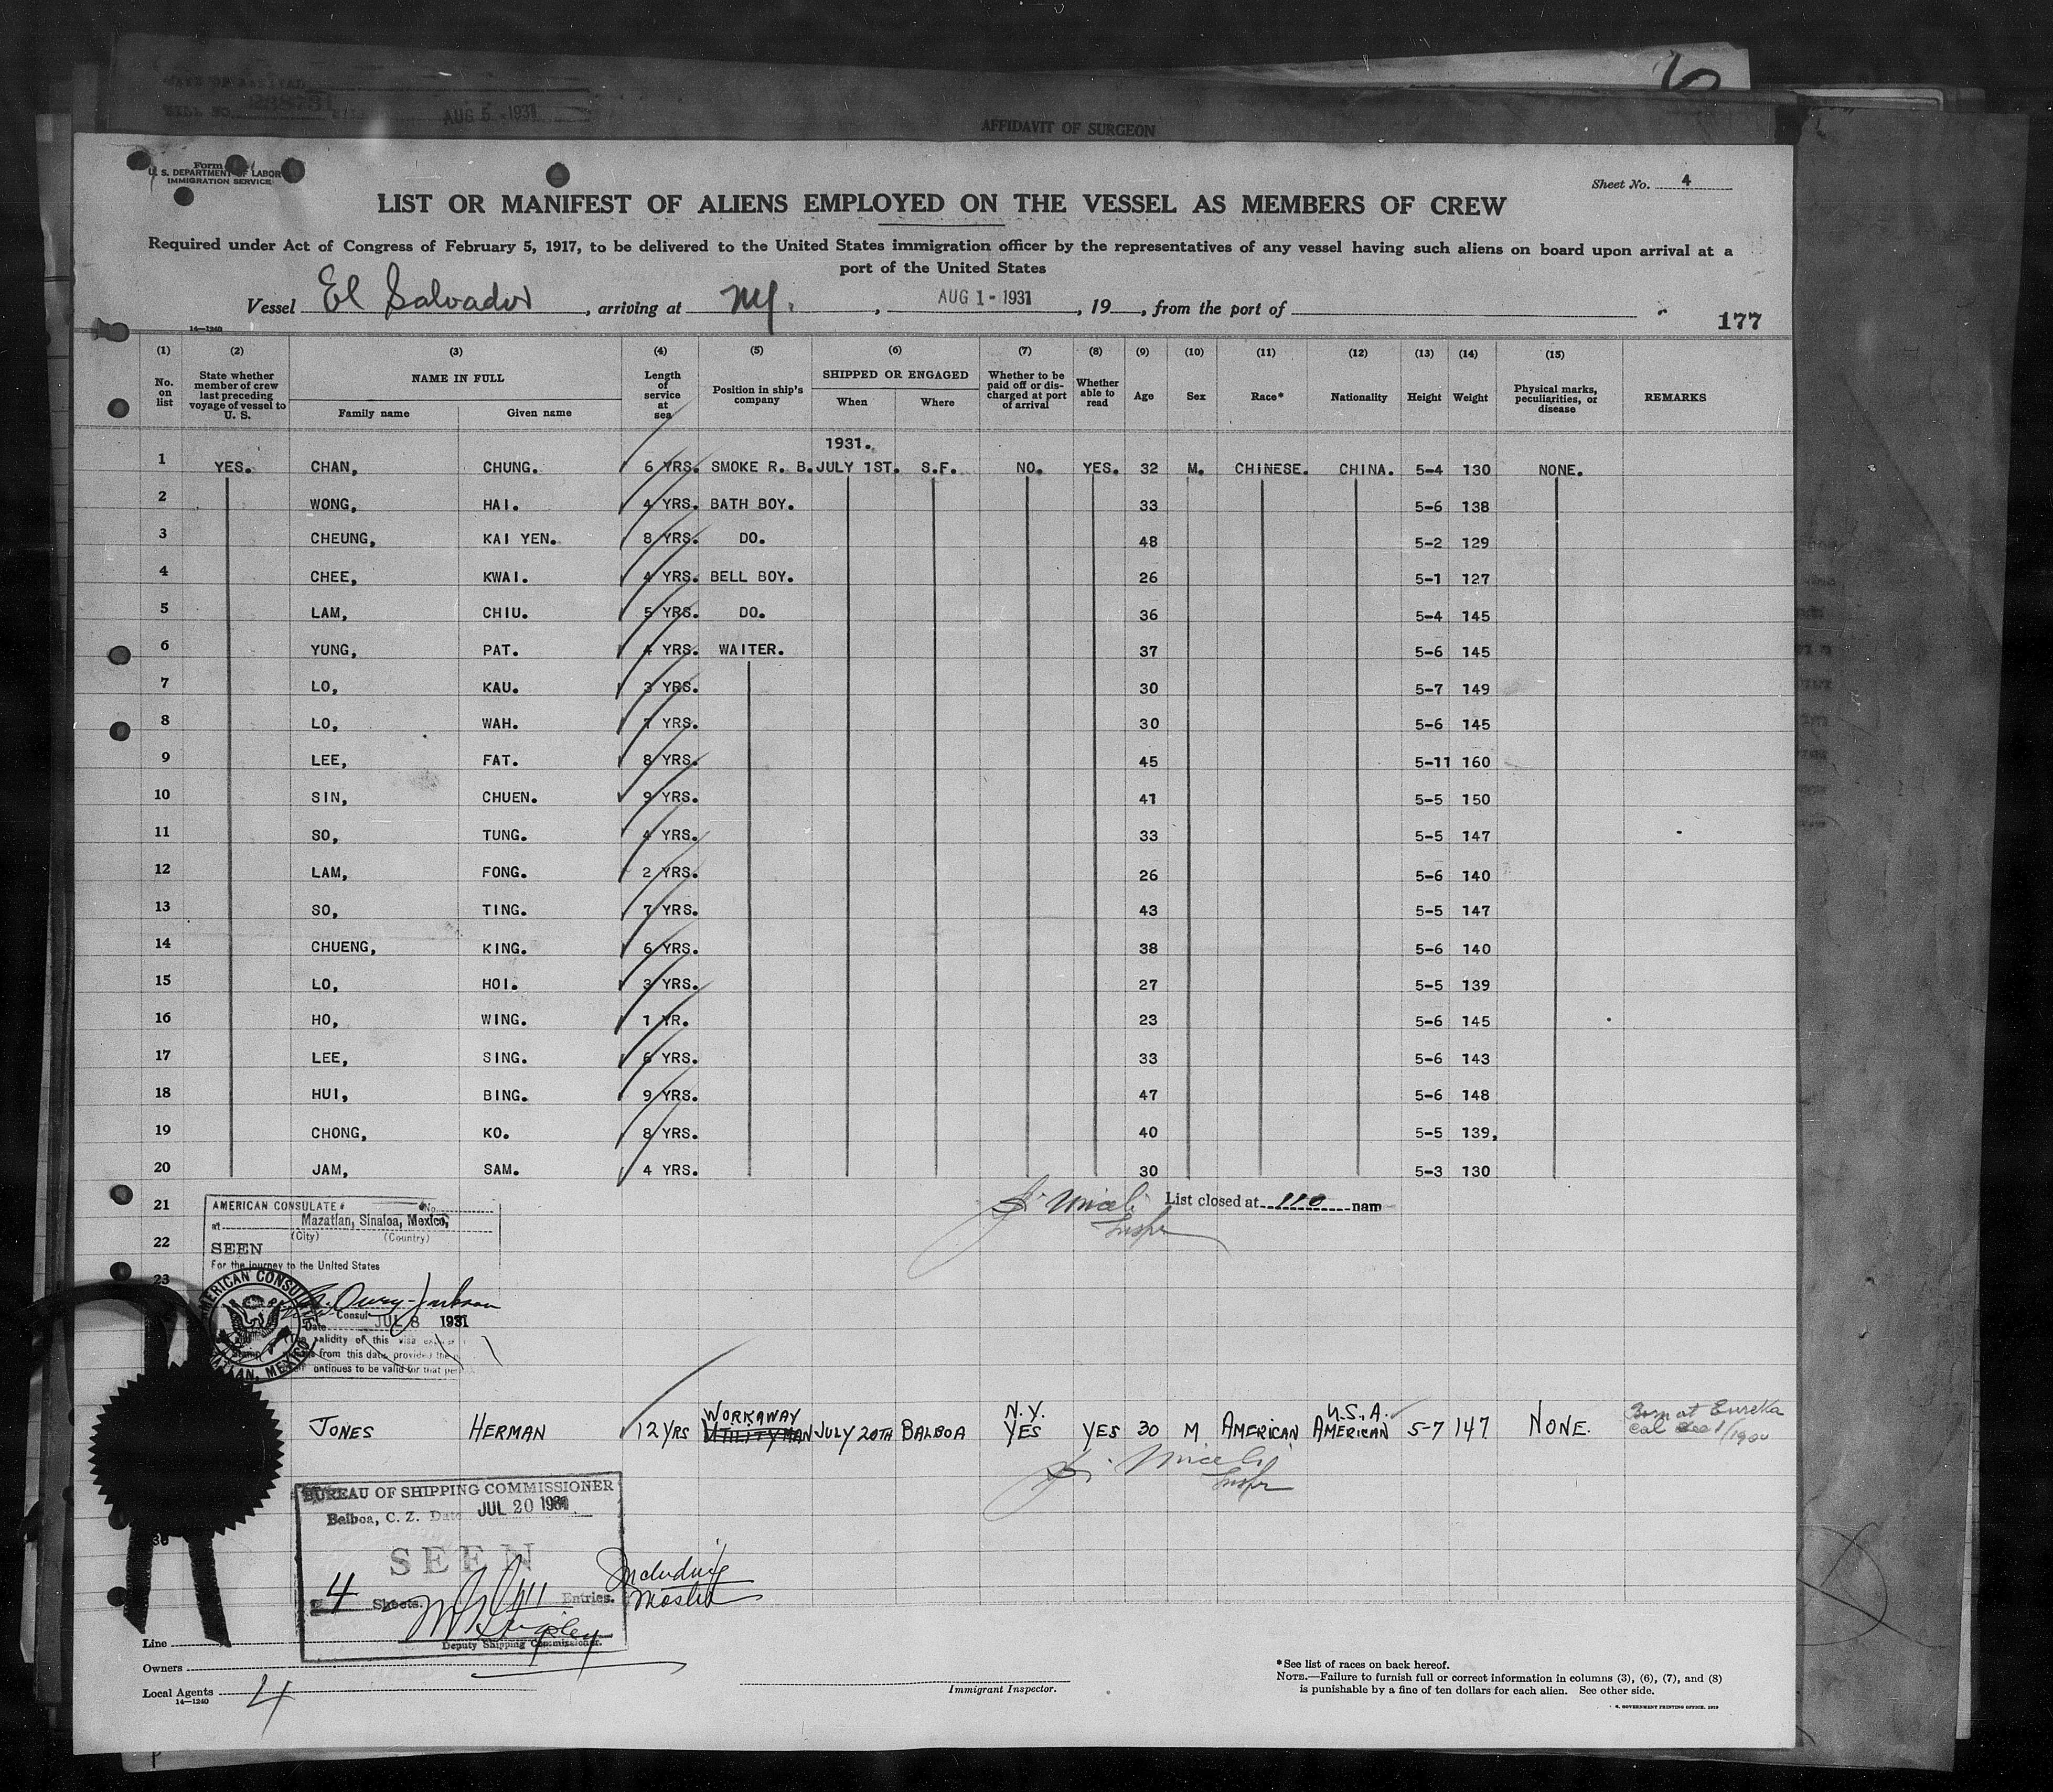 AUG 5 - 1931
AFFIDAVIT OF SURGEON
Form
U. S. DEPARTMENT OF LABOR
IMMIGRATION SERVICE
Sheet No. 4
LIST OR MANIFEST OF ALIENS EMPLOYED ON THE VESSEL AS MEMBERS OF CREW
Required under Act of Congress of February 5, 1917, to be delivered to the United States immigration officer by the representatives of any vessel having such aliens on board upon arrival at a
port of the United States
Vessel El Salvador, arriving at NY., AUG 1 - 1931, 19, from the port of
177
14—1240
(1) (2) (3) (4) (5) (6) (7) (8) (9) (10) (11) (12) (13) (14) (15)
No. on list State whether member of crew last preceding voyage of vessel to U. S. NAME IN FULL Family name Given name Length of service at sea Position in ship's company SHIPPED OR ENGAGED When Where Whether to be paid off or discharged at port of arrival Whether able to read Age Sex Race* Nationality Height Weight Physical marks, peculiarities, or disease REMARKS
1931.
1 YES. CHAN, CHUNG. 6 YRS. SMOKE R. B. JULY 1ST. S.F. NO. YES. 32 M. CHINESE. CHINA. 5-4 130 NONE.
2 WONG, HAI. 4 YRS. BATH BOY. 33 5-6 138
3 CHEUNG, KAI YEN. 8 YRS. DO. 48 5-2 129
4 CHEE, KWAI. 4 YRS. BELL BOY. 26 5-1 127
5 LAM, CHIU. 5 YRS. DO. 36 5-4 145
6 YUNG, PAT. 4 YRS. WAITER. 37 5-6 145
7 LO, KAU. 3 YRS. 30 5-7 149
8 LO, WAH. 7 YRS. 30 5-6 145
9 LEE, FAT. 8 YRS. 45 5-11 160
10 SIN, CHUEN. 9 YRS. 41 5-5 150
11 SO, TUNG. 4 YRS. 33 5-5 147
12 LAM, FONG. 2 YRS. 26 5-6 140
13 SO, TING. 7 YRS. 43 5-5 147
14 CHUENG, KING. 6 YRS. 38 5-6 140
15 LO, HOI. 3 YRS. 27 5-5 139
16 HO, WING. 1 YR. 23 5-6 145
17 LEE, SING. 6 YRS. 33 5-6 143
18 HUI, BING. 9 YRS. 47 5-6 148
19 CHONG, KO. 8 YRS. 40 5-5 139,
20 JAM, SAM. 4 YRS. 30 5-3 130
21
List closed at 110 nam
Miceli
Inspr
AMERICAN CONSULATE No.
at Mazatlan, Sinaloa, Mexico,
(City) (Country)
22
SEEN
For the journey to the United States
23
AMERICAN CONSULATE
Consul
Date JUL 8 1931
validity of this visa
from this date, provided the
continues to be valid for that
MAZATLAN, MEXICO
WORKAWAY N.Y. U.S.A.
JONES HERMAN 12 YRS UTILITYMAN JULY 20TH BALBOA YES YES 30 M AMERICAN AMERICAN 5-7 147 NONE.
Born at Eureka
Cal
Miceli
Inspr
BUREAU OF SHIPPING COMMISSIONER
Balboa, C. Z. Date JUL 20 1931
SEEN
4 Sheets. 111 Entries. Including
Master
Deputy Shipping Commissioner.
Line
Owners
Local Agents 4
14—1240
Immigrant Inspector.
*See list of races on back hereof.
NOTE.—Failure to furnish full or correct information in columns (3), (6), (7), and (8)
is punishable by a fine of ten dollars for each alien. See other side.